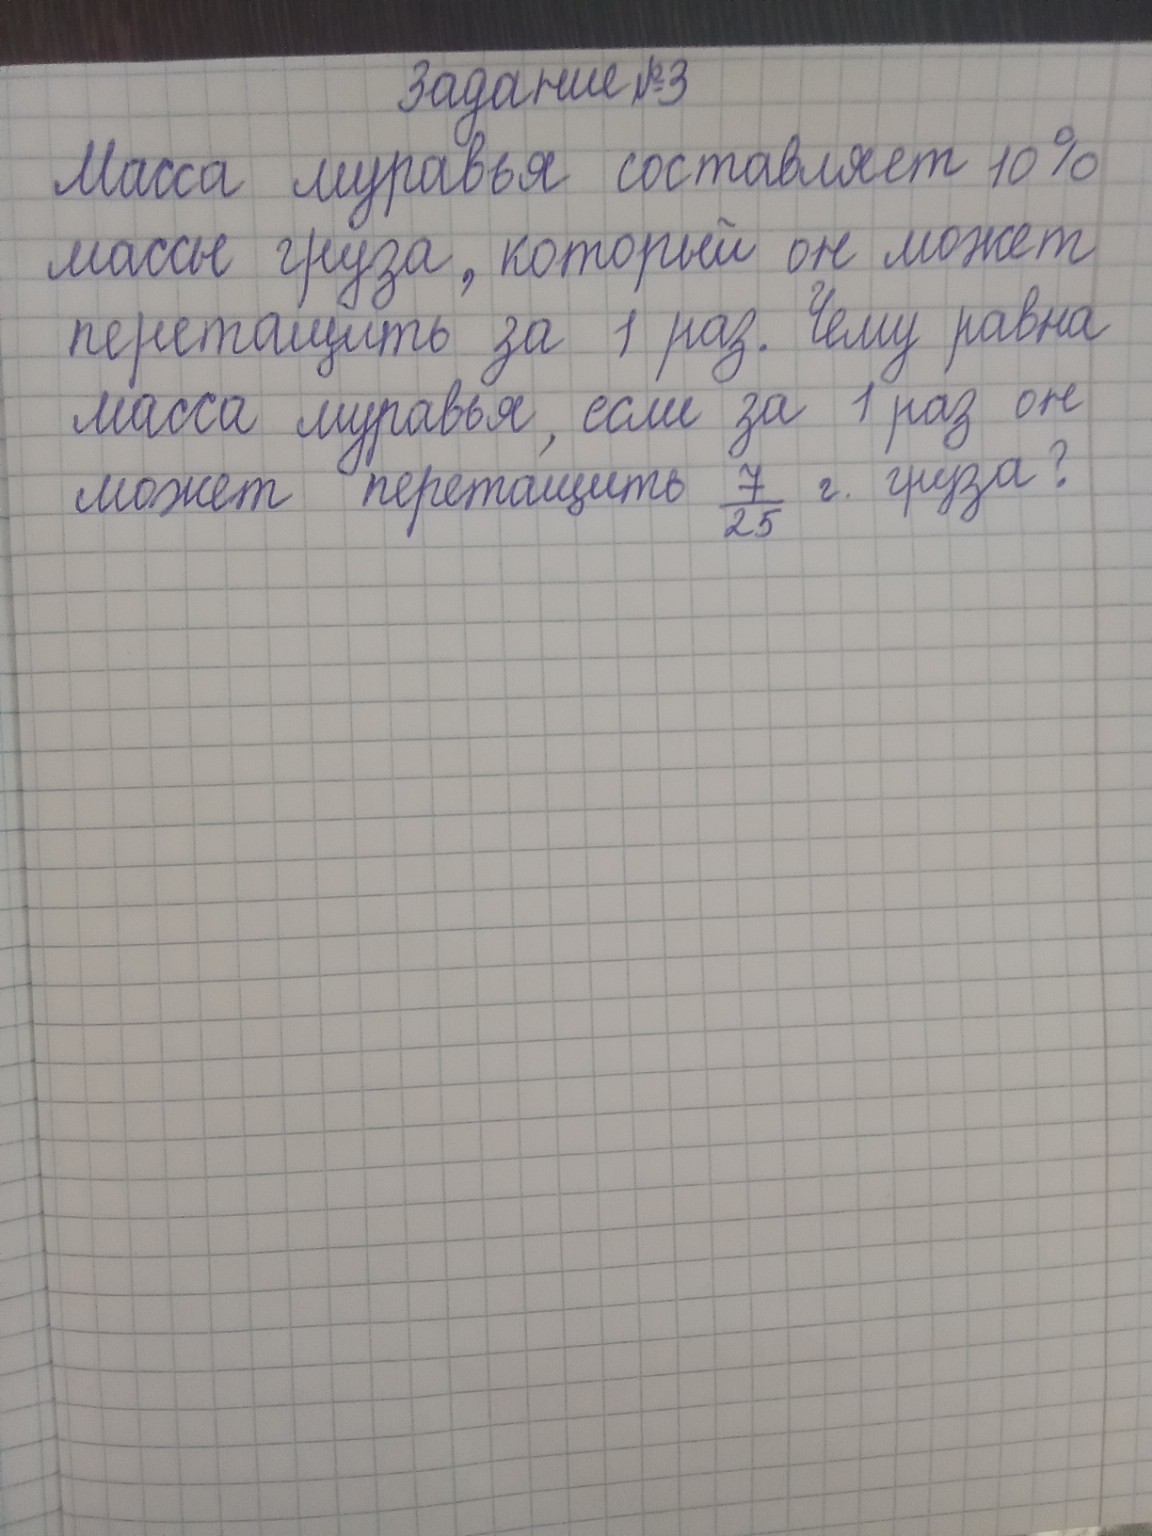 Задание №3
Масса муравья составляет 10%
массы груза, который он может
перетащить за 1 раз. Чему равна
масса муравья, если за 1 раз он
может перетащить 7/25 г. груза?